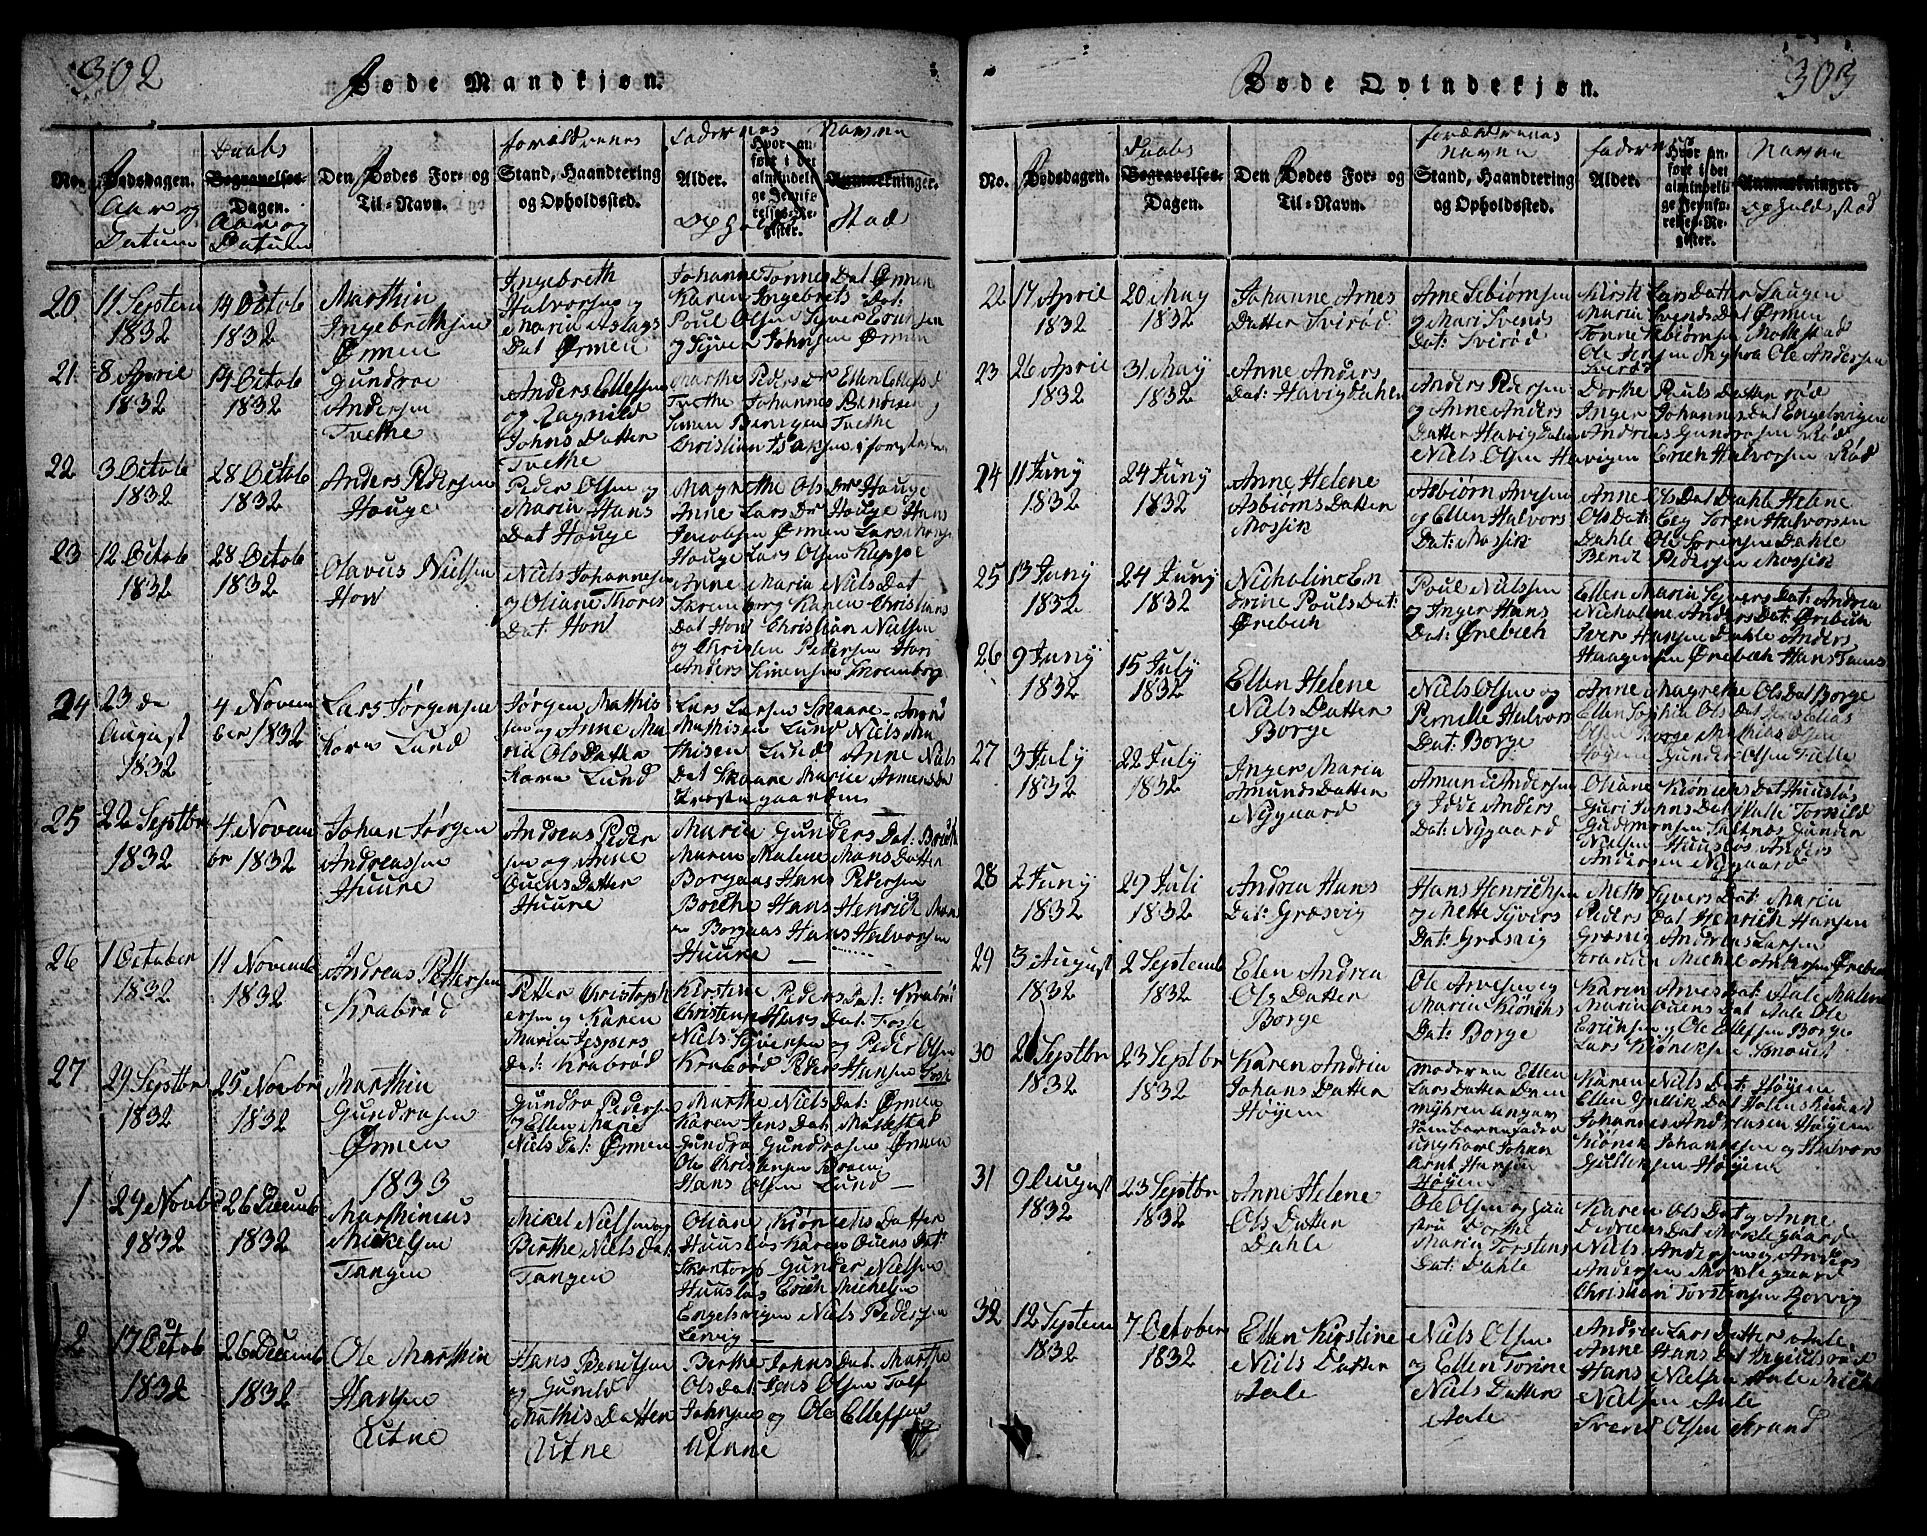 302
Føde Mandkjøn.
No.
Fødsdagen.
Aar og
Datum
Daabs
Begravelses-
Dagen.
Aar og
Datum
Den Fødes For- og
Til-Navn.
Forældrenes
Stand, Haandtering
og Opholdssted.
Faddernes Navne
Alder.
Hvor an-
ført i det
almindeli-
ge Jevnfø-
relses-Re-
gister.
Anmærkninger.
Opholds Stad
20
11 Septem
1832
14 Octob
1832
Marthin
Ingebrethsen
Ørmen
Ingebreth
Halvorsen og
Maria Aslags
Dat Ørmen
Johanne Tonnes Dat Ørmen
Karen Ingebrets Dat:
Poul Olsen Syver Erichsen
og Syver Johnsen Ørmen
21
8 April
1832
14 Octob
1832
Gundroe
Andersen
Tvethe
Anders Ellefsen
og Ragnild
Johns Datter
Tvethe
Marthe Peders Dr Ellen Ellefs D
Tvethe Johannes Bendixen
Simen Bentsen Tvethe
Christian Isaksen
22
3 Octob
1832
28 Octob
1832
Anders Pedersen
Houge
Peder Olsen og
Maria Hans
Dat Houge
Magrethe Ols Dr Houge
Anne Lars Dr Houge Hans
Jacobsen Ørmen Lars
Houge Lars Olsen Kleppe
23
12 Octob
1832
28 Octob
1832
Olavus Nielsen
How
Niels Johannesen
og Oliane Thores
Dat: How
Anne Maria Niels Dat
Skrenborg Karen Christians
Dat How Christian Nielsen
og Christen Petersen How
Anders Simensen Skrenborg
24
23 de
August
1832
4 Novem
ber 1832
Lars Jørgensen
Kors Lund
Jørgen Mathis
sen og Anne Ma
ria Ols Datter
Kors Lund
Lars Larsen Skaare
Mathisen Lund Niels Ma
thisen Lund Anne Niels
Dat Skaare Marie
Trostegaarden
25
22 Septbr
1832
4 Novem
br 1832
Johan Jørgen
Andreassen
Huure
Andreas Peder
sen og Anne
Ouens Datter
Huure
Maria Gunders Dat:
Maren Malene Hans Datter
Borgaas Hans Pedersen
Boethe Hans Henrich
Borgaas Hans Halvorsen
Huure
26
1 October
1832
11 Novemb
1832
Andreas Pettersen
Krabrød
Petter Christoph
ersen og Karen
Maria Jespers
Dat: Krabrød
Kirstine Peders Dat: Krabrø
Christense Hans Dat: Toste
Niels Syversen og Peder Olsen
Krabrød Peder Hansen Toste
27
29 Septbr
1832
25 Novbr
1832
Marthin
Gundrosen
Ørmen
Gundro Pedersen
og Ellen Marie
Niels Dat: Ørmen
Marthe Niels Dat: Ørmen
Karen Jens Dat Mollestad
Gundro Gundrosen Ørmen
Ole Christensen Braem
Hans Olsen Lund
1833
1
29 Novbr
1832
26 Decemb
1832
Marthinius
Mikelsen
Tangen
Mikel Nielsen og
Berthe Niels Dat:
Tangen
Oliane Kiønichs Datter
Huusløs Karen Ouens Dat:
Skontorp Gunder Nielsen
Huusløs Erich Michelsen
Engelsvigen Niels Pedersen
Lervig
2
17 Octob
1832
26 Decemb
1832
Ole Marthin
Hansen
Utne
Hans Bentsen
og Gunild
Mathis Datter
Utne
Berthe Johns Dat. Marthe
Ols Dat Jens Olsen Tolf
Johnsen og Ole Ellefsen
Utne
303
Føde Qvindekjøn.
No.
Fødsdagen.
Daabs
Begravelses-
Dagen.
Den Fødes For- og
Til-Navn.
Forældrenes
Navne
Stand, Haandtering
og Opholdssted.
Faddernes Navne
Alder.
Hvor an-
ført i det
almindeli-
ge Jevnfø-
relses-Re-
gister.
Anmærkninger.
Opholds Stad
22
17 April
1832
20 May
1832
Johanne Arnes
Datter Svirød
Arne Sebiørnsen
og Mari Svends
Dat: Svirød
Kirsti Lars Datter Saugen
Maria Svends Dat Ørmen
Tonne Sebiørnsen Mollestad
Ole Jensen Ole Andersen
Svirød
23
26 April
1832
31 May
1832
Anne Anders
Dat: Havigdahlen
Anders Pedersen
og Anne Anders
Datter Havigdalen
Niels Olsen Havigen
Dorthe Pouls Datter Rød
Inger Johannes Dat Engelsvigen
Andreas Gundrosen Rød
Erich Halvorsen Rød
24
11 Juny
1832
24 Juny
1832
Anne Helene
Asbiørns Datter
Mossik
Asbiørn Arvesen
og Ellen Halvors
Dat: Mossik
Anne Ols Dat Dahle Helene
Ols Dat: Eeg Soren Halvorsen
Dahle Ole Sorensen Dahle
Bendt Pedersen Mossik
25
13 Juny
1832
24 Juny
1832
Nicholine En
drine Pouls Dat:
Ørebech
Poul Nielsen
og Inger Hans
Dat: Ørebech
Ellen Maria Syvers Dat: Andrea
Nicholene Anders Dat: Ørebech
Iver Hansen Dahle Anders
Haagensen Ørebech Hans
26
9 Juny
1832
15 July
1832
Ellen Helene
Niels Datter
Borge
Niels Olsen og
Pernille Halvors
Dat: Borge
Anne Magrethe Ols Dat Borge
Ellen Sophia Ols Dat Jens Elias
Olsen Borge Mathias Olsen
Høyene Gunder Olsen
27
3 July
1832
22 July
1832
Inger Maria
Amunds Datter
Nygaard
Amund Andersen
og Idde Anders
Dat: Nygaard
Oliane Kiønichs Dat Huusløs
Guri Johns Dat Torvild
Gudmonsen Saltnæs Gunder
Nielsen Huusløs Anders
Andersen Nygaard
28
2 Juny
1832
29 Juli
1832
Andrea Hans
Dat: Græsvig
Hans Henrichsen
og Mette Syvers
Dat: Græsvig
Mette Syvers Dat: Maria
Peders Dat Henrich Hansen
Græsvig Andreas Larsen
Michel Andersen Ørebech
29
3 August
1832
2 Septemb
1832
Elen Andrea
Ols Datter
Borge
Ole Arvesen og
Maria Kiønichs
Dat: Borge
Karen Arves Dat: Aale Malene
Maria Ouens Dat Aale Ole
Erichsen og Ole Ellefsen Borge
Lars Kiønichsen
30
2 Septbr
1832
23 Septbr
1832
Karen Andria
Johans Datter
Høyem
Moderen Ellen
Lars Datter Dram
myhren angav
som barnefader
ungkarl Johan
Arnt Hansen
Høyem
Karen Niels Dat: Høyene
Ellen Gullik Dat
Johannes Andersen Høyem
Kiønik Johannesen og Halvor
Gulliksen Høyene
31
9 August
1832
23 Septbr
1832
Anne Helene
Ols Datter
Dahle
Ole Olsen og Huu
stru Dorthe
Maria Torstens
Dat: Dahle
Karen Ols Dat og Anne
Didriks Dat Moklegaard
Niels Andersen og Anders
Andersen Moklegaard
Christian Torstensen Borvig
32
12 Septem
1832
7 October
1832
Ellen Kirstine
Niels Datter
Aale
Niels Olsen
og Ellen Torine
Niels Datter
Aale
Andrea Lars Datter Aale
Anne Hans Dat
Hans Nielsen Aale
Nielsen Aale
Svend Olsen Strand